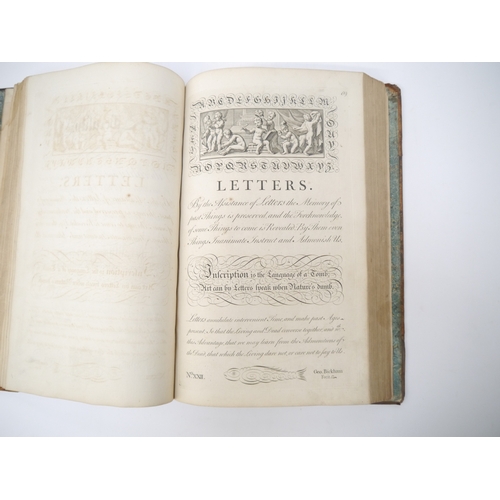 ABCDEFGHIJKLM
NOPQRSTUVWXYZ.
LETTERS.
By the Assistance of Letters the Memory of
past Things is preserved, and the Foreknowledge
of some Things to come is Reveal'd. By Them even
Things Inanimate Instruct and Admonish Us.
Inscription is the Language of a Tomb,
Art can by Letters speak when Nature's dumb.
Letters annihilate intervenient Time, and make past Ages
present; So that the Living and Dead commune together, and
this Advantage, that we may learn from the Admonitions of
the Dead, that which the Living dare not, or care not to say to Us.
No. XXII.
Geo. Bickham